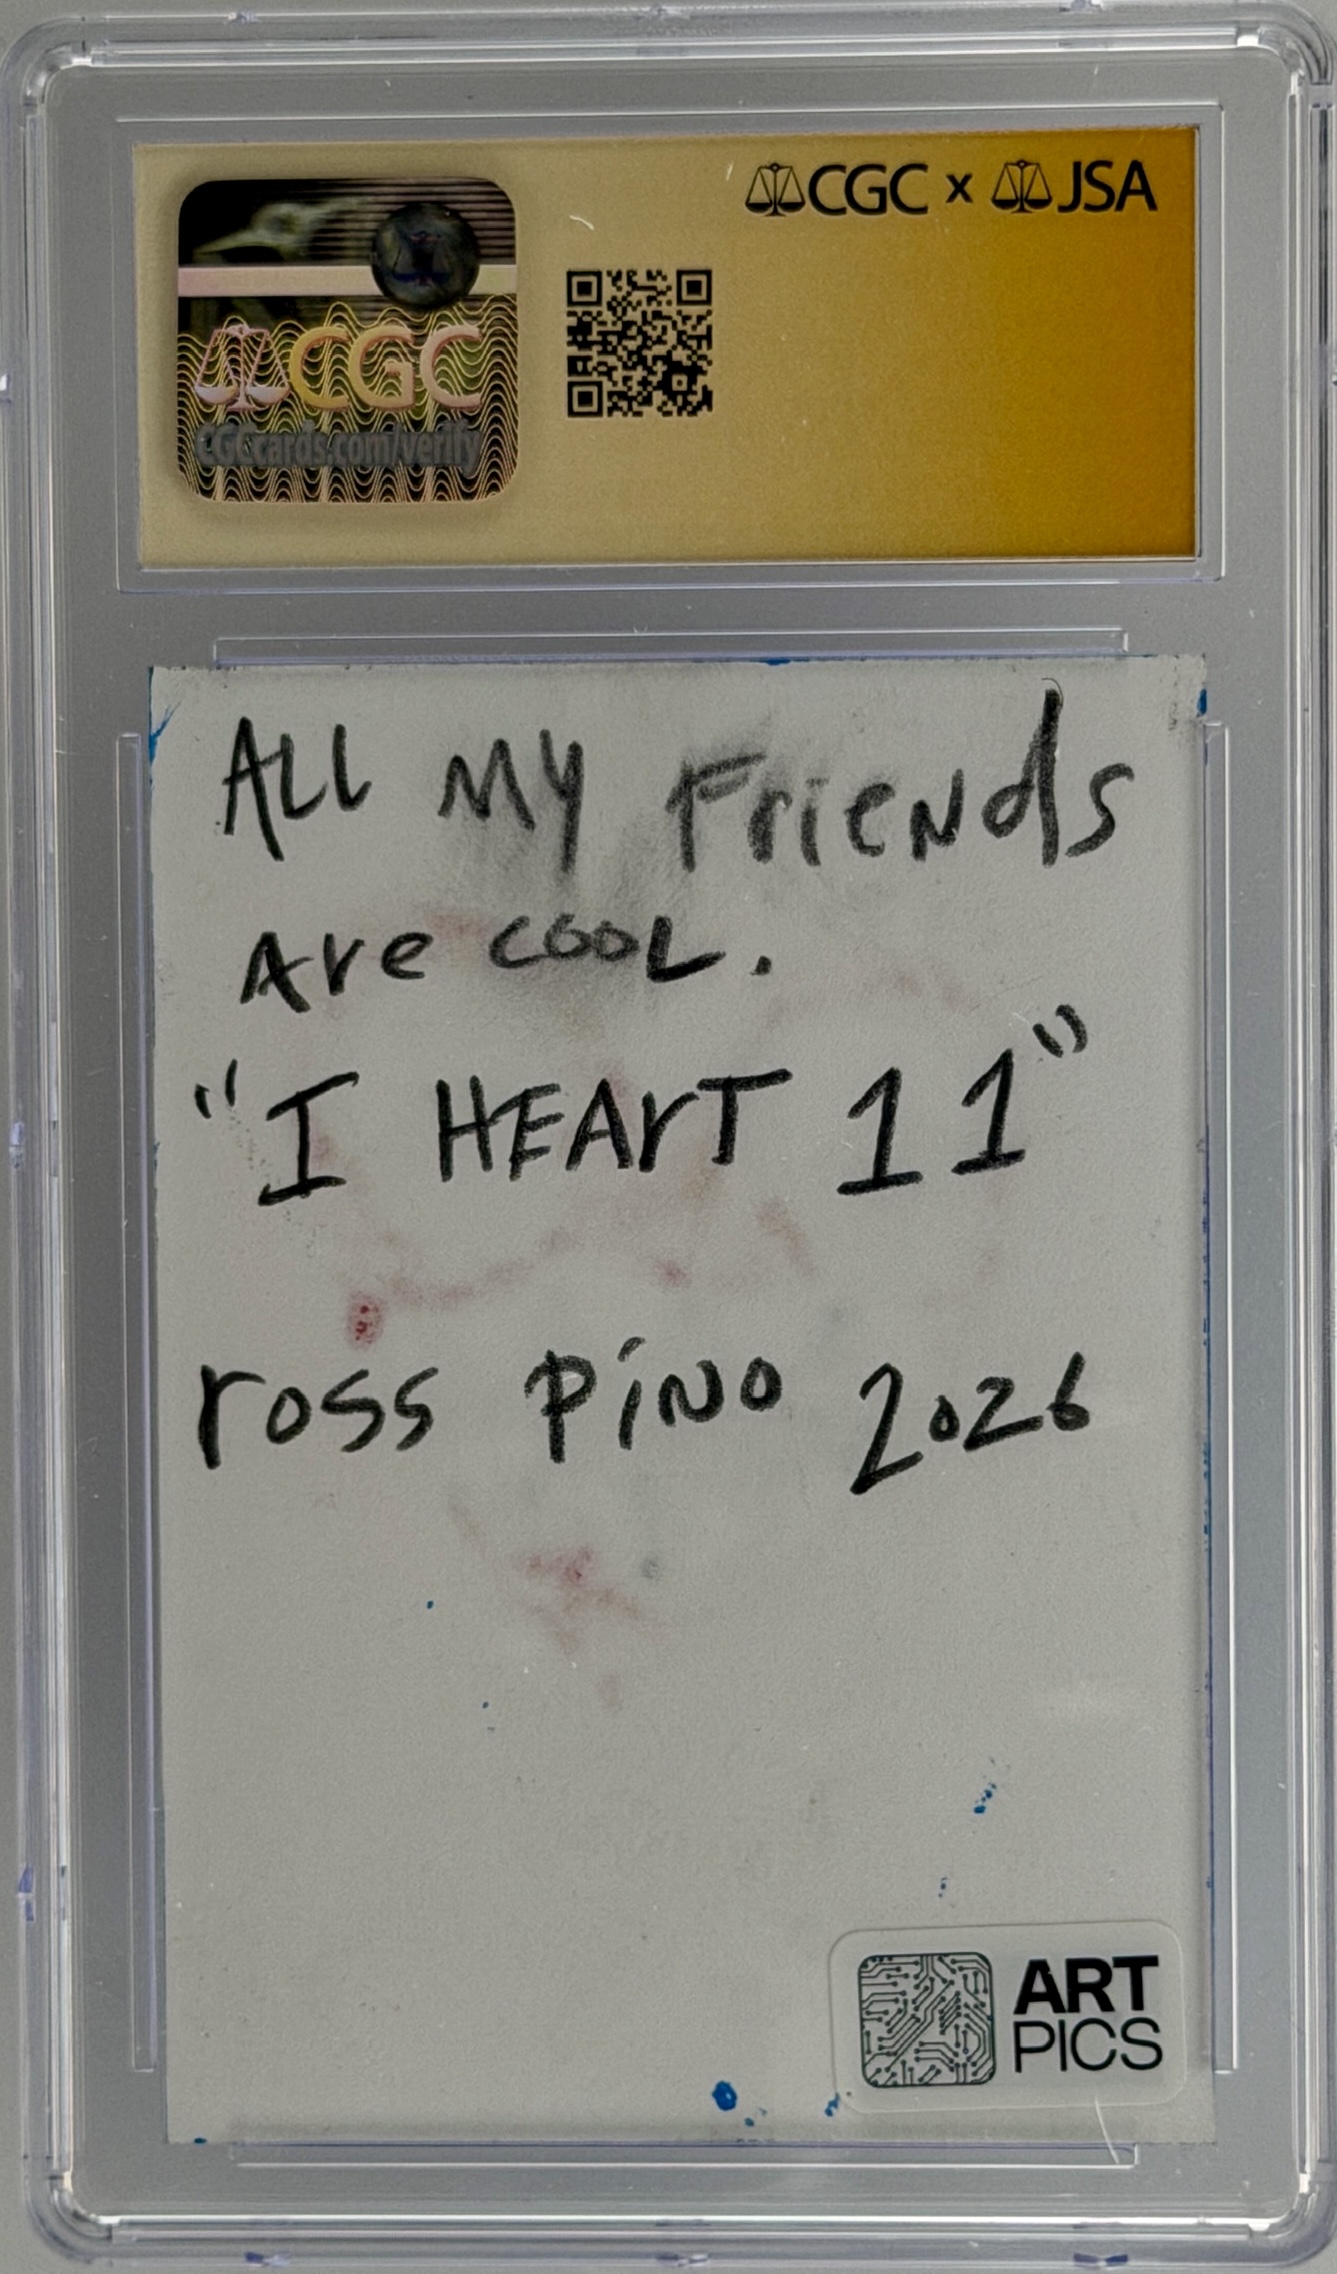 CGC x JSA
CGC
CGCcards.com/verify
ALL MY FrieNds
Are COOL.
"I HEArT 11"
ross PiNo 2026
ART
PICS